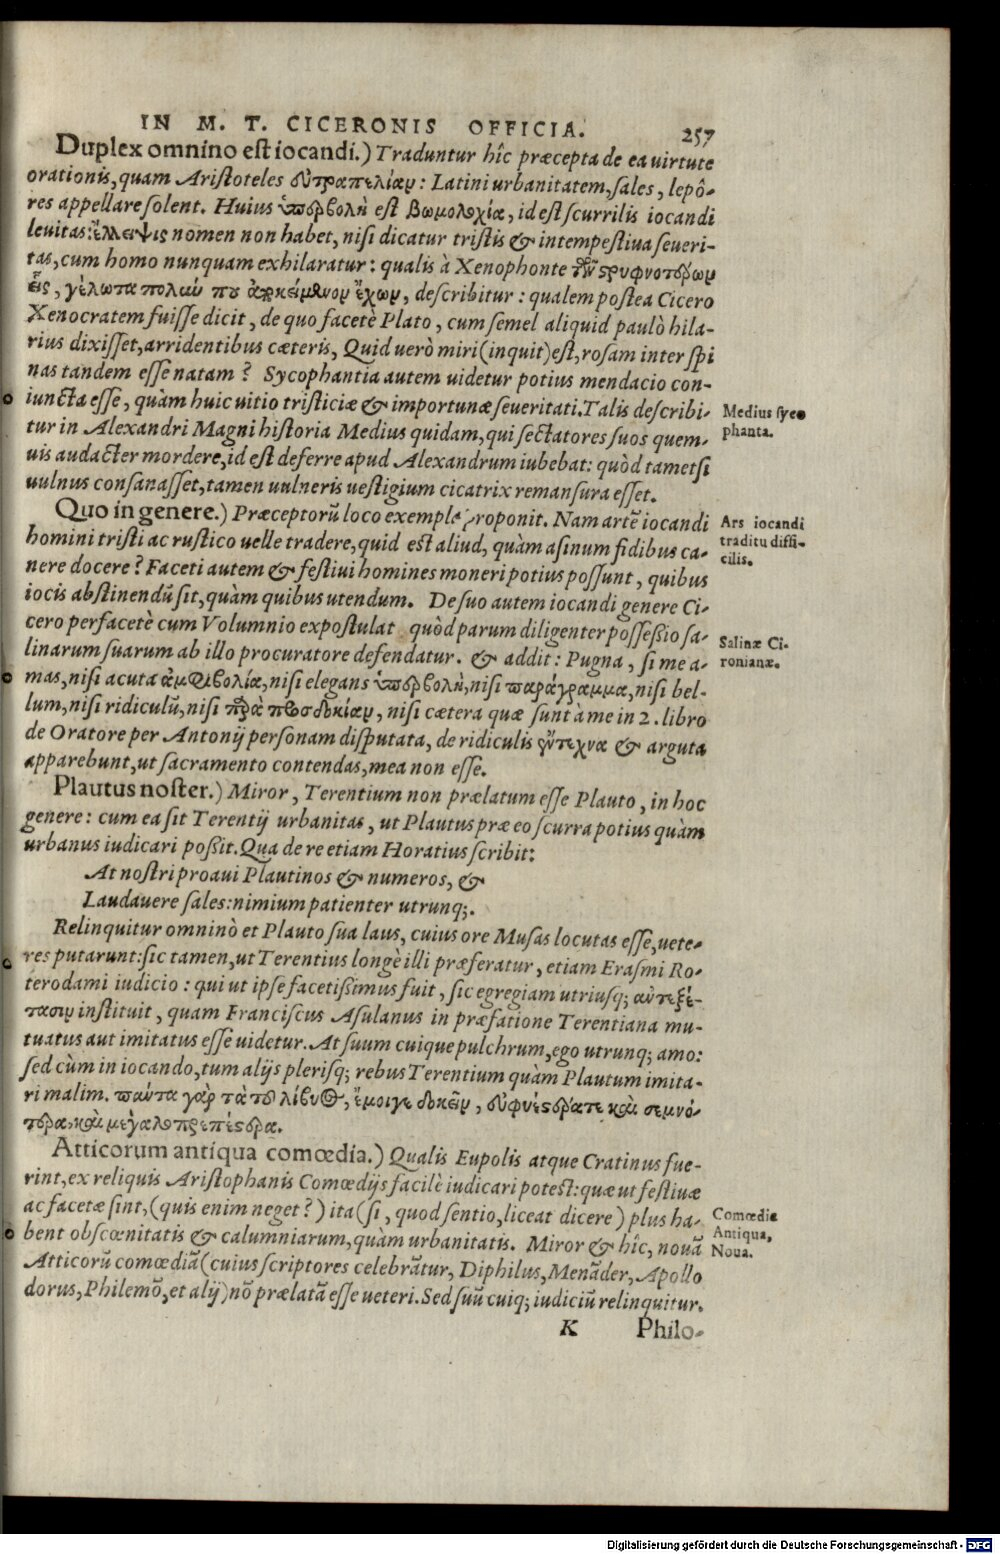 IN M. T. CICERONIS OFFICIA. 257
Duplex omnino est iocandi.) Traduntur hîc præcepta de ea uirtute
orationis, quam Aristoteles εὐτραπελίαν: Latini urbanitatem, sales, lepô-
res appellare solent. Huius ὑπερβολὴ est βωμολοχία, id est scurrilis iocandi
leuitas: ἔλλειψις nomen non habet, nisi dicatur tristis & intempestiua seueri-
tas, cum homo nunquam exhilaratur: qualis à Xenophonte τῶν στρυφνοτέρων
εἷς, γέλωτα πολὺν που ἀρκείμενον ἔχων, describitur: qualem postea Cicero
Xenocratem fuisse dicit, de quo facetè Plato, cum semel aliquid paulò hila-
rius dixisset, arridentibus cæteris, Quid uerò miri (inquit) est, rosam inter spi
nas tandem esse natam? Sycophantia autem uidetur potius mendacio con-
iuncta esse, quàm huic uitio tristiciæ & importunæ seueritati. Talis describi-
tur in Alexandri Magni historia Medius quidam, qui sectatores suos quem-
uis audacter mordere, id est deferre apud Alexandrum iubebat: quòd tametsi
uulnus consanasset, tamen uulneris uestigium cicatrix remansura esset.
Medius syco
phanta.
Quo in genere.) Præceptorũ loco exempla proponit. Nam artẽ iocandi
homini tristi ac rustico uelle tradere, quid est aliud, quàm asinum fidibus ca-
nere docere? Faceti autem & festiui homines moneri potius possunt, quibus
iocis abstinendũ sit, quàm quibus utendum. De suo autem iocandi genere Ci-
cero perfacetè cum Volumnio expostulat quòd parum diligenter possessio sa-
linarum suarum ab illo procuratore defendatur. & addit: Pugna, si me a-
mas, nisi acuta ἀμφιβολία, nisi elegans ὑπερβολὴ, nisi παράγραμμα, nisi bel-
lum, nisi ridiculũ, nisi παρὰ προσδοκίαν, nisi cætera quæ sunt à me in 2. libro
de Oratore per Antonij personam disputata, de ridiculis ἔντεχνα & arguta
apparebunt, ut sacramento contendas, mea non esse.
Ars iocandi
traditu diffi-
cilis.
Salinæ Ci-
ronianæ.
Plautus noster.) Miror, Terentium non prælatum esse Plauto, in hoc
genere: cum ea sit Terentij urbanitas, ut Plautus præ eo scurra potius quàm
urbanus iudicari possit. Qua de re etiam Horatius scribit:
At nostri proaui Plautinos & numeros, &
Laudauere sales: nimium patienter utrunq;.
Relinquitur omninò et Plauto sua laus, cuius ore Musas locutas esse, uete-
res putarunt: sic tamen, ut Terentius longè illi præferatur, etiam Erasmi Ro-
terodami iudicio: qui ut ipse facetissimus fuit, sic egregiam utriusq; αὐτεξέ-
τασιν instituit, quam Franciscus Asulanus in præfatione Terentiana mu-
tuatus aut imitatus esse uidetur. At suum cuique pulchrum, ego utrunq; amo:
sed cùm in iocando, tum alijs plerisq; rebus Terentium quàm Plautum imita-
ri malim. πάντα γὰρ τὰ τοῦ λίβυος, ἔμοιγε δοκεῖν, εὐφυέστερά τε καὶ σεμνό-
τερα, καὶ μεγαλοπρεπέστερα.
Atticorum antiqua comœdia.) Qualis Eupolis atque Cratinus fue-
rint, ex reliquis Aristophanis Comœdijs facilè iudicari potest: quæ ut festiuæ
ac facetæ sint, (quis enim neget?) ita (si, quod sentio, liceat dicere) plus ha-
bent obscœnitatis & calumniarum, quàm urbanitatis. Miror & hîc, nouã
Atticorũ comœdiã (cuius scriptores celebrãtur, Diphilus, Menãder, Apollo
dorus, Philemõ, et alij) nõ prælatã esse ueteri. Sed suũ cuiq; iudiciũ relinquitur.
Comœdia
Antiqua,
Noua.
K Philo-
Digitalisierung gefördert durch die Deutsche Forschungsgemeinschaft - DFG